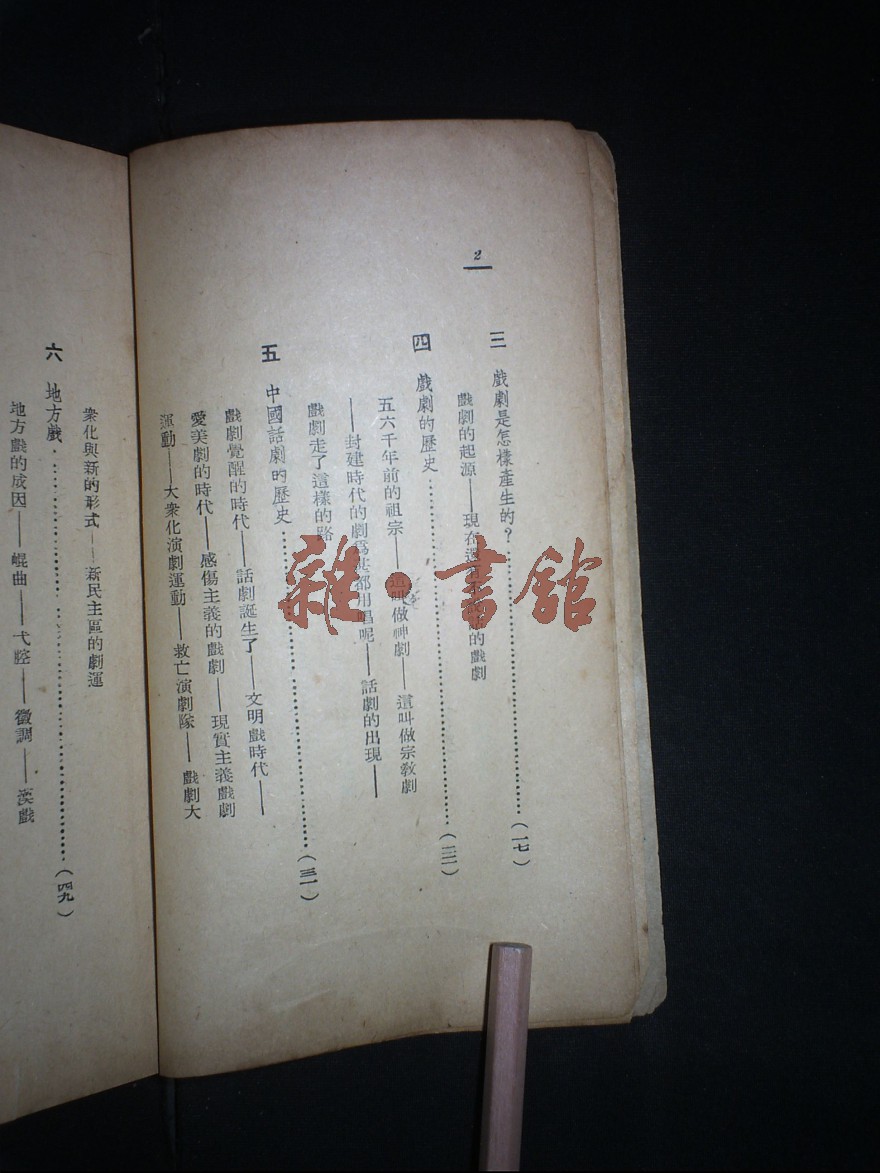 2
三 戲劇是怎樣產生的？……………………（一七）
戲劇的起源——現在還有不說話的戲劇
四 戲劇的歷史……………………（二二）
五六千年前的祖宗——這叫做神劇——這叫做宗教劇
——封建時代的劇爲甚都用唱呢——話劇的出現——
戲劇走了這樣的路
五 中國話劇的歷史……………………（三一）
戲劇覺醒的時代——話劇誕生了——文明戲時代——
愛美劇的時代——感傷主義的戲劇——現實主義戲劇
運動——大衆化演劇運動——救亡演劇隊——戲劇大
衆化與新的形式——新民主區的劇運
六 地方戲……………………（四九）
地方戲的成因——崐曲——弋腔——徽調——漢戲
雜·書舘